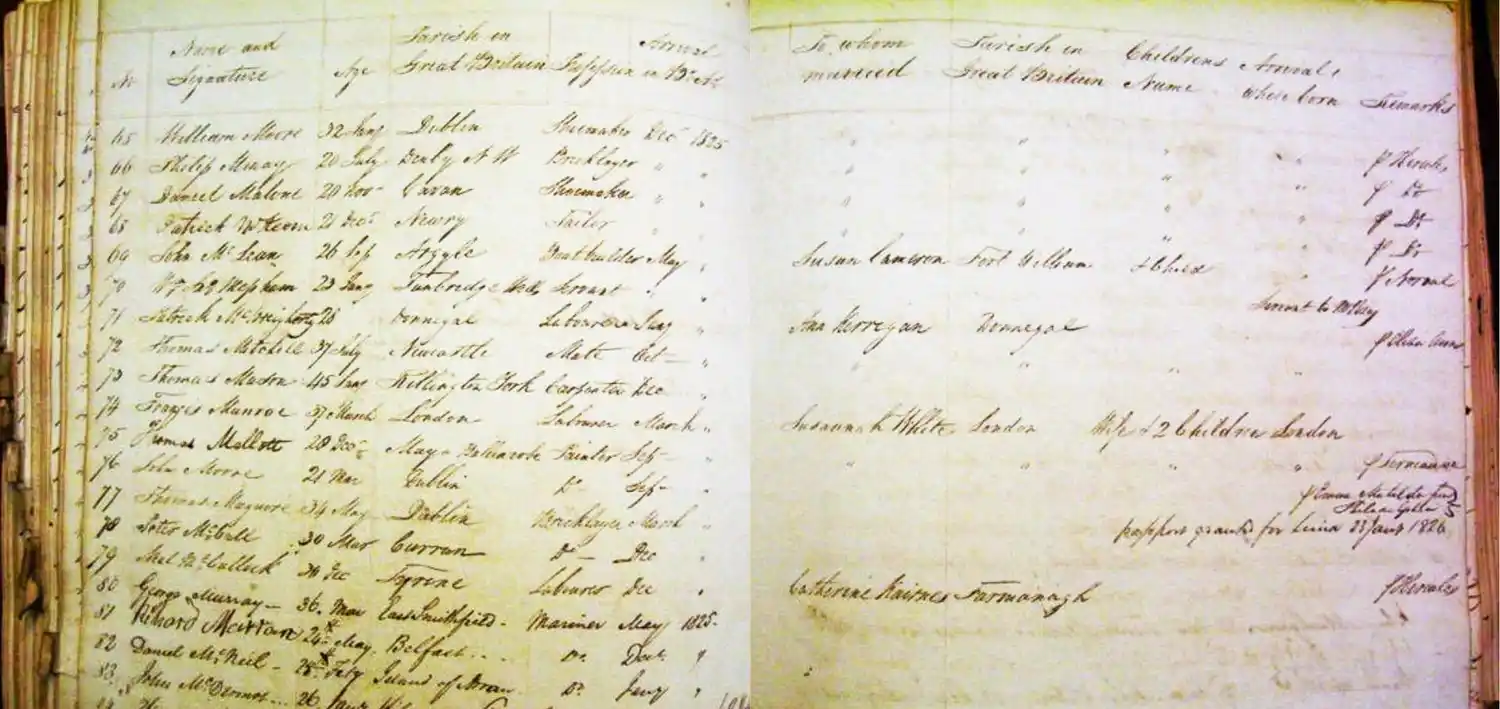 No Name and Signature Age Parish in Great Britain Profession Arrival in Bs As
65 William Moore 32 Jany Dublin Shoemaker Dec 1825
66 Philip 20 July N W Bricklayer " "
67 Daniel Malone 20 Novr Cavan Shoemaker " "
68 Patrick 21 Decr Newry Tailor " "
69 John McLean 26 Sep Argyle Boatbuilder May "
70 Mepham 23 Jany Tunbridge Wells Servant " "
71 Patrick 28 Donnegal Labourer Jany "
72 Thomas Mitchell 37 July Newcastle Mate Oct "
73 Thomas Mason 45 Jany Rillington York Carpenter Dec "
74 Francis Munroe 37 March London Labourer March "
75 Thomas Mallott 28 Decr Mayo Painter Sep "
76 John Moore 21 Mar Dublin Do Sep "
77 Thomas Maguire 34 May Dublin Bricklayer March "
78 Peter McCall 30 Mar Do Dec "
79 McCulloch 30 Dec Tyrone Labourer Dec "
80 George Murray 36 Mar East Smithfield Mariner May 1825
81 Richard 24 May Belfast Do "
82 Daniel McNeil 25 Island of Arran Do Jany "
83 John McDermot 26
To whom married Parish in Great Britain Childrens Name Arrival & where born Remarks
" " " " p Hercules
" " " " p Do
" " " " p Do
" " " " p Do
Susan Cameron Fort William 1 Child " p Norval
Servant to
Ann Kerrigan Donnegal
p Eliza Ann
" " " "
Susannah White London Wife & 2 Children London
" " " "
p Emma Matilda from Philadelphia
passport granted for Lima 23 Jany 1826
Catherine Kairnes Farmanagh p Hercules